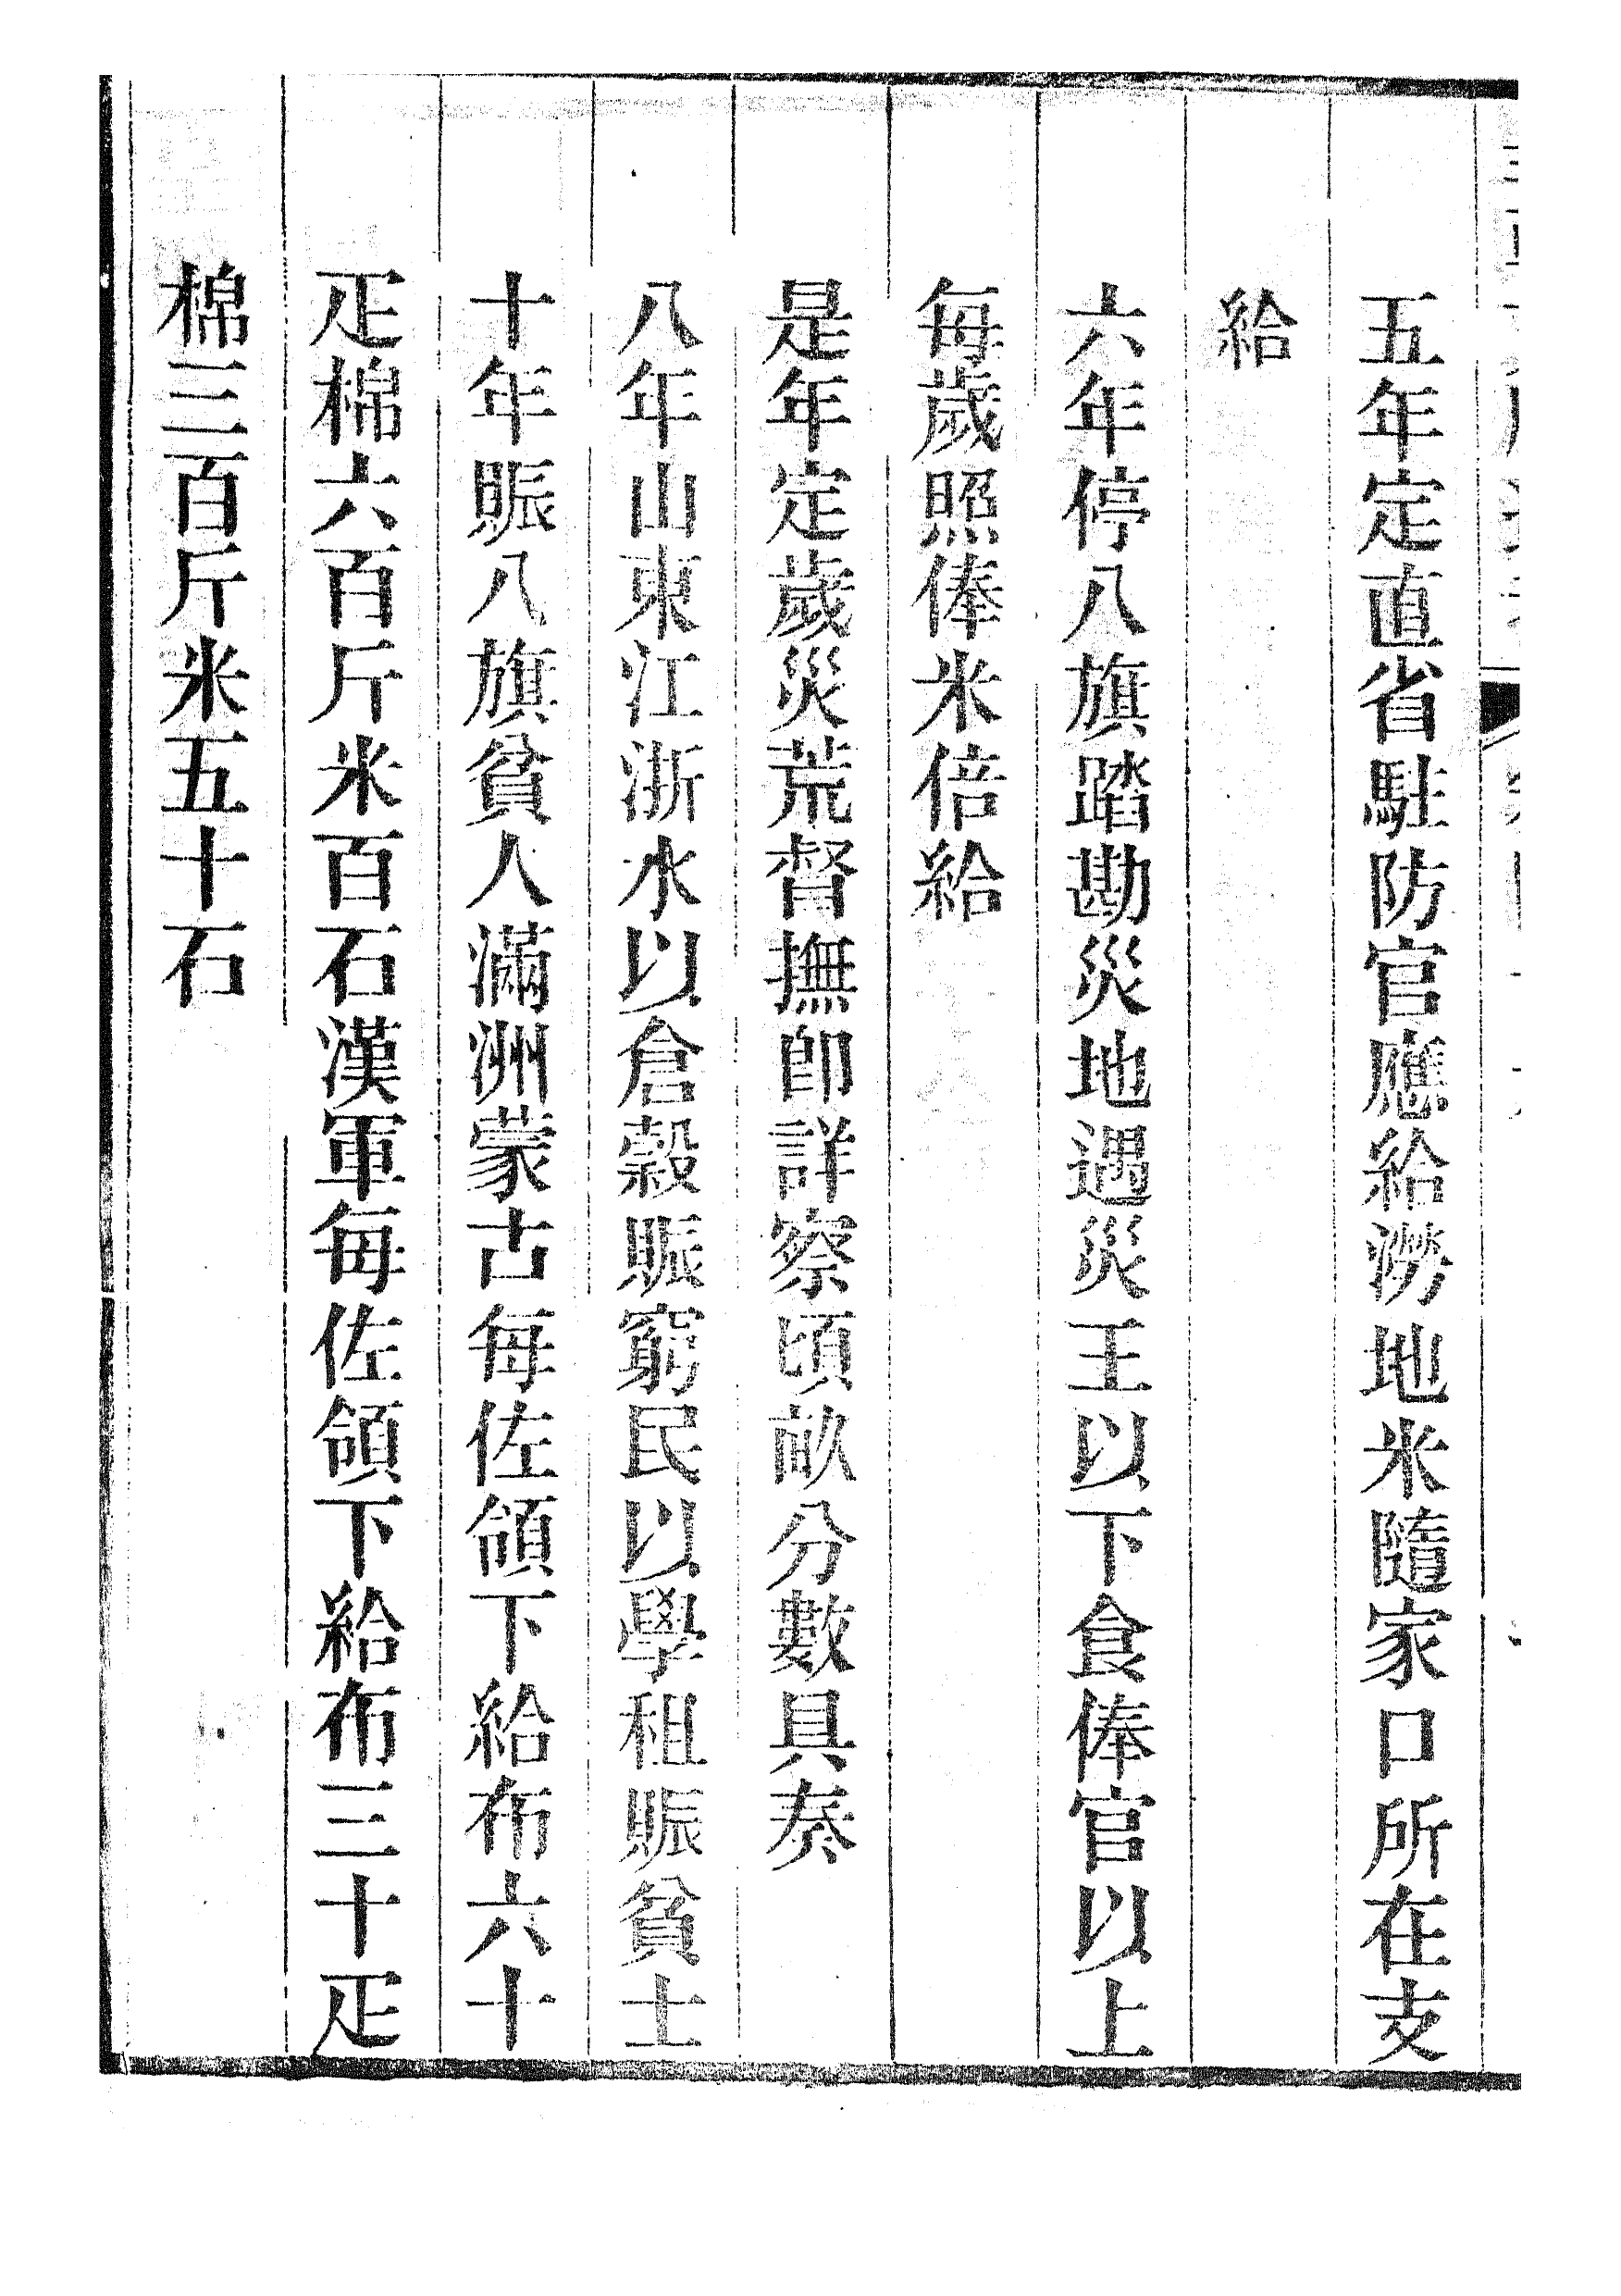 五年定直省駐防官應給澇地米隨家口所在支
給
六年停八旗踏勘災地遇災王以下食俸官以上
每歲照俸米倍給
是年定歲災荒督撫即詳察頃畝分數具奏
八年山東江浙水以倉穀賑窮民以學租賑貧士
十年賑八旗貧人滿洲蒙古每佐領下給布六十
疋棉六百斤米百石漢軍每佐領下給布三十疋
棉三百斤米五十石